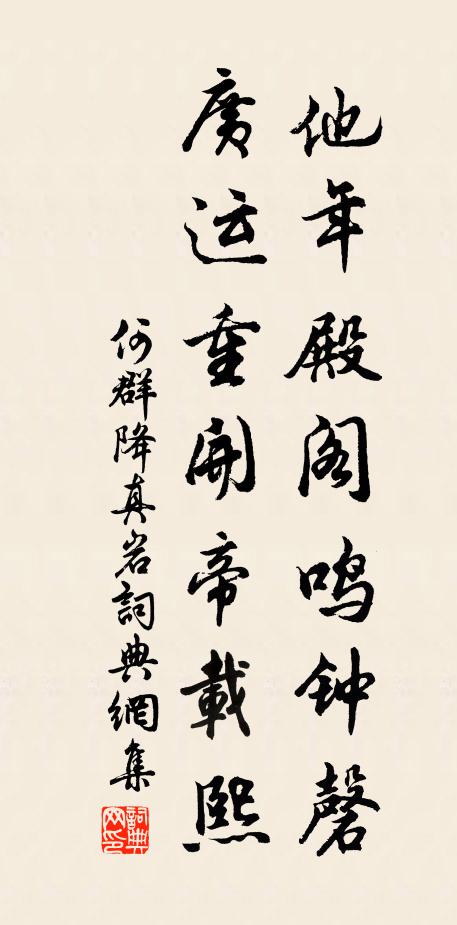 他年殿阁鸣钟磬
廣运重開帝載熙
何群降真岩詞典網集
詞典网印